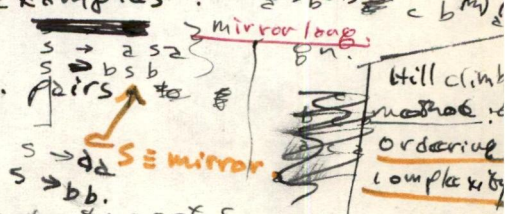 mirror lang.
S → a S a
S → b S b
gn.
pairs to
S ≡ mirror
S → aa
S → bb.
Hill climb
method.
ordering
complexity